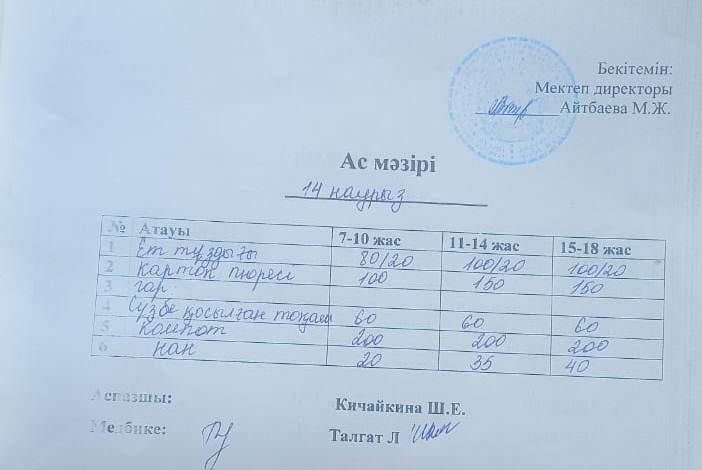 Бекітемін:
Мектеп директоры
Айтбаева М.Ж.
Ас мәзірі
14 наурыз
№ Атауы 7-10 жас 11-14 жас 15-18 жас
1 Ет тұздығы 80/20 100/20 100/20
2 Картоп пюресі 100 150 150
3 гар
4 Сүзбе қосылған тоқаш 60 60 60
5 Компот 200 200 200
6 нан 20 35 40
Аспазшы: Кичайкина Ш.Е.
Медбике: Талгат Л